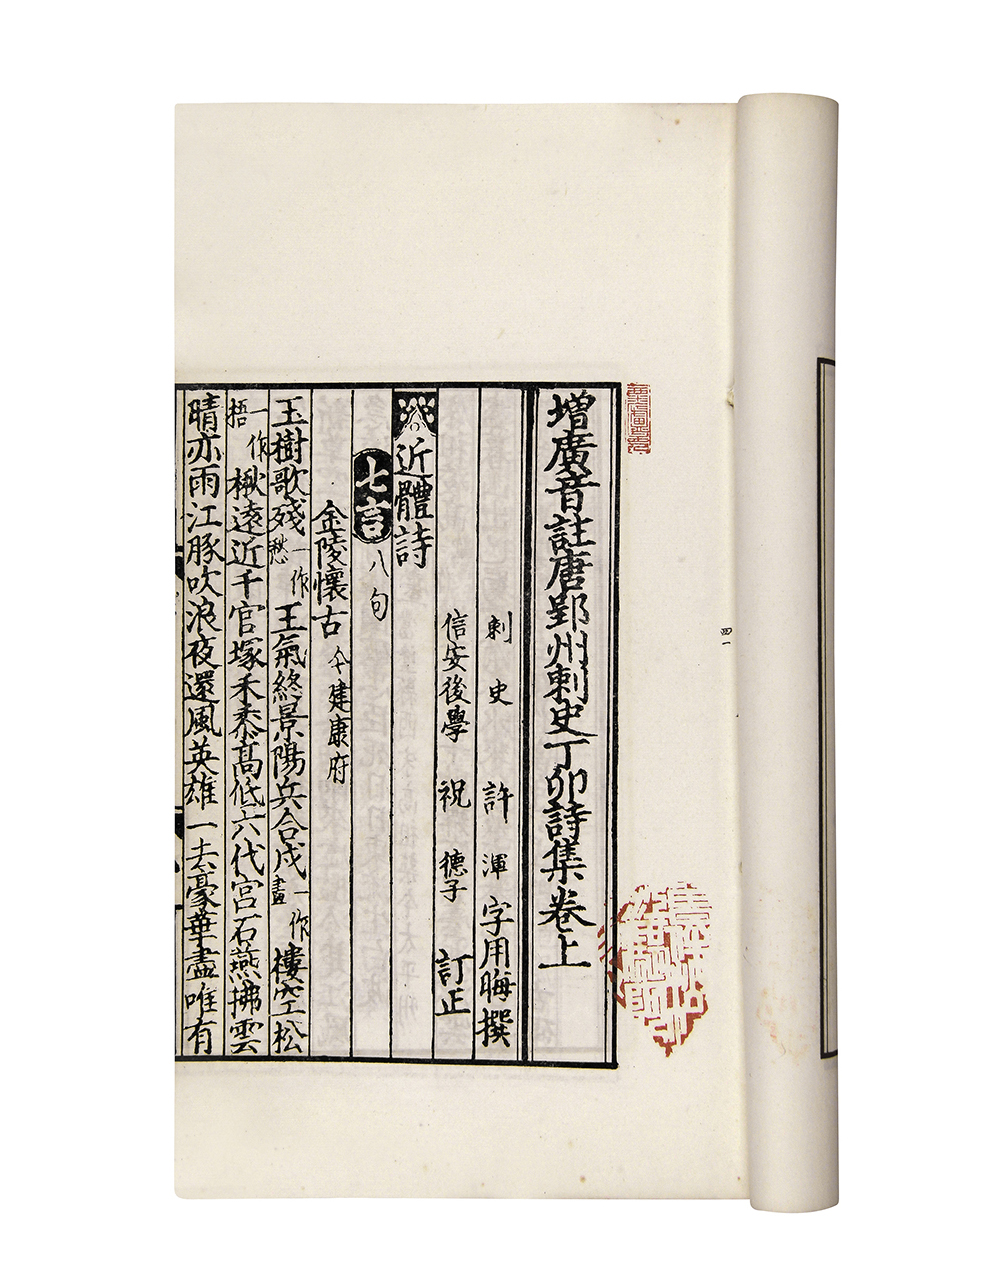 增廣音註唐郢州刺史丁卯詩集卷上
刺史 許渾 字用晦 撰
信安後學 祝德子 訂正
近體詩
七言 八句
金陵懷古 今建康府
玉樹歌殘 一作愁 王氣終景陽兵合戍 一作畫 樓空松
一作梧 楸遠近千官塚禾黍高低六代宮石燕拂雲
晴亦雨江豚吹浪夜還風英雄一去豪華盡唯有
四一